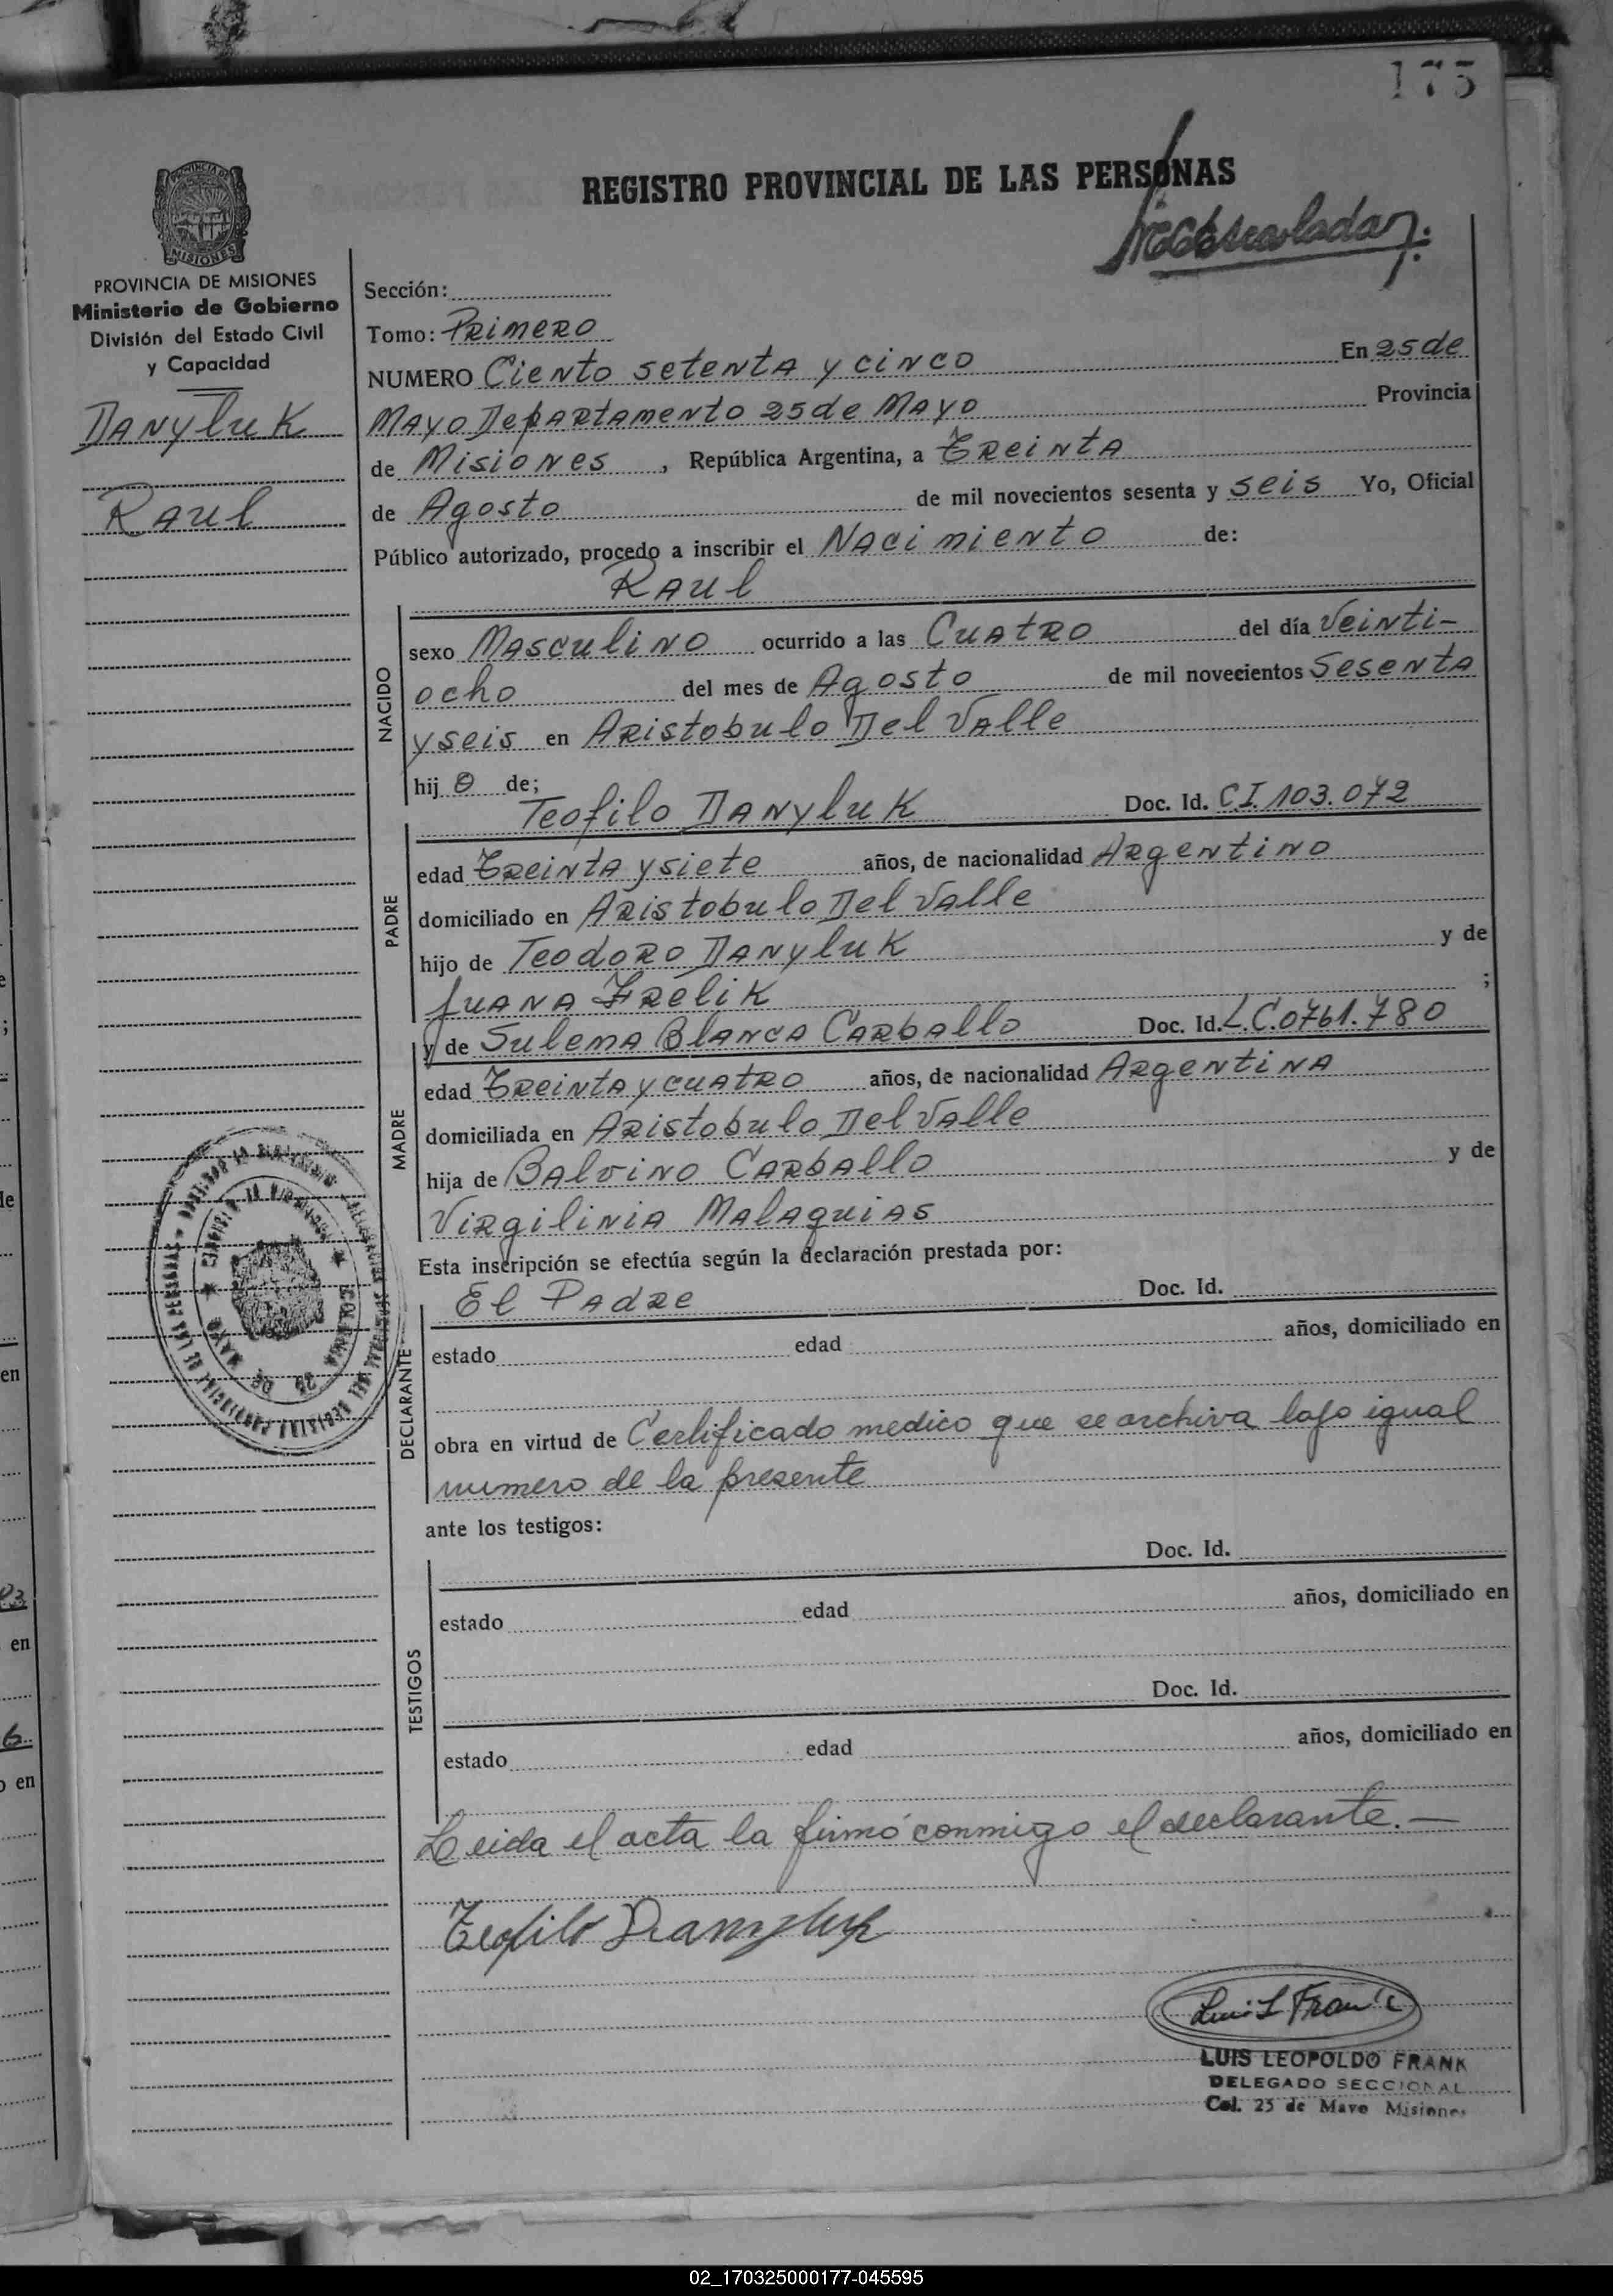 175
REGISTRO PROVINCIAL DE LAS PERSONAS
PROVINCIA DE MISIONES
Ministerio de Gobierno
División del Estado Civil
y Capacidad
DANYluK
RAUL
Sección:
Tomo: PRIMERO
NUMERO Ciento setentA y ciNco En 25 de
MAYO DepARtAmento 25 de MAYO Provincia
de Misiones, República Argentina, a TReintA
de Agosto de mil novecientos sesenta y seis Yo, Oficial
Público autorizado, procedo a inscribir el NAcimiento de:
RAUL
NACIDO
sexo MAsculiNO ocurrido a las CuAtRO del día Veinti-
ocho del mes de Agosto de mil novecientos SesentA
y seis en ARistobulo Del VAlle
hij o de;
PADRE
Teofilo DANYluK Doc. Id. C.I. 103.072
edad TReintA y siete años, de nacionalidad ARgentiNO
domiciliado en ARistobulo Del VAlle
hijo de TeodoRO DANYluK y de
JUANA HRelik ;
MADRE
y de SulemA BlANcA CARbAllo Doc. Id. L.C.0761.780
edad TReintA y cuAtRO años, de nacionalidad ARgentiNA
domiciliada en ARistobulo Del VAlle
hija de BAlviNO CARbAllo y de
ViRgiliniA MAlAquiAs
Esta inscripción se efectúa según la declaración prestada por:
DECLARANTE
El PAdRe Doc. Id.
estado edad años, domiciliado en
obra en virtud de Certificado medico que se archiva bajo igual
numero de la presente
ante los testigos:
TESTIGOS
Doc. Id.
estado edad años, domiciliado en
Doc. Id.
estado edad años, domiciliado en
Leida el acta la firmó conmigo el declarante.—
Teofilo Danyluk
Luis L Frank
LUIS LEOPOLDO FRANK
DELEGADO SECCIONAL
Col. 25 de Mayo Misiones
02_170325000177-045595